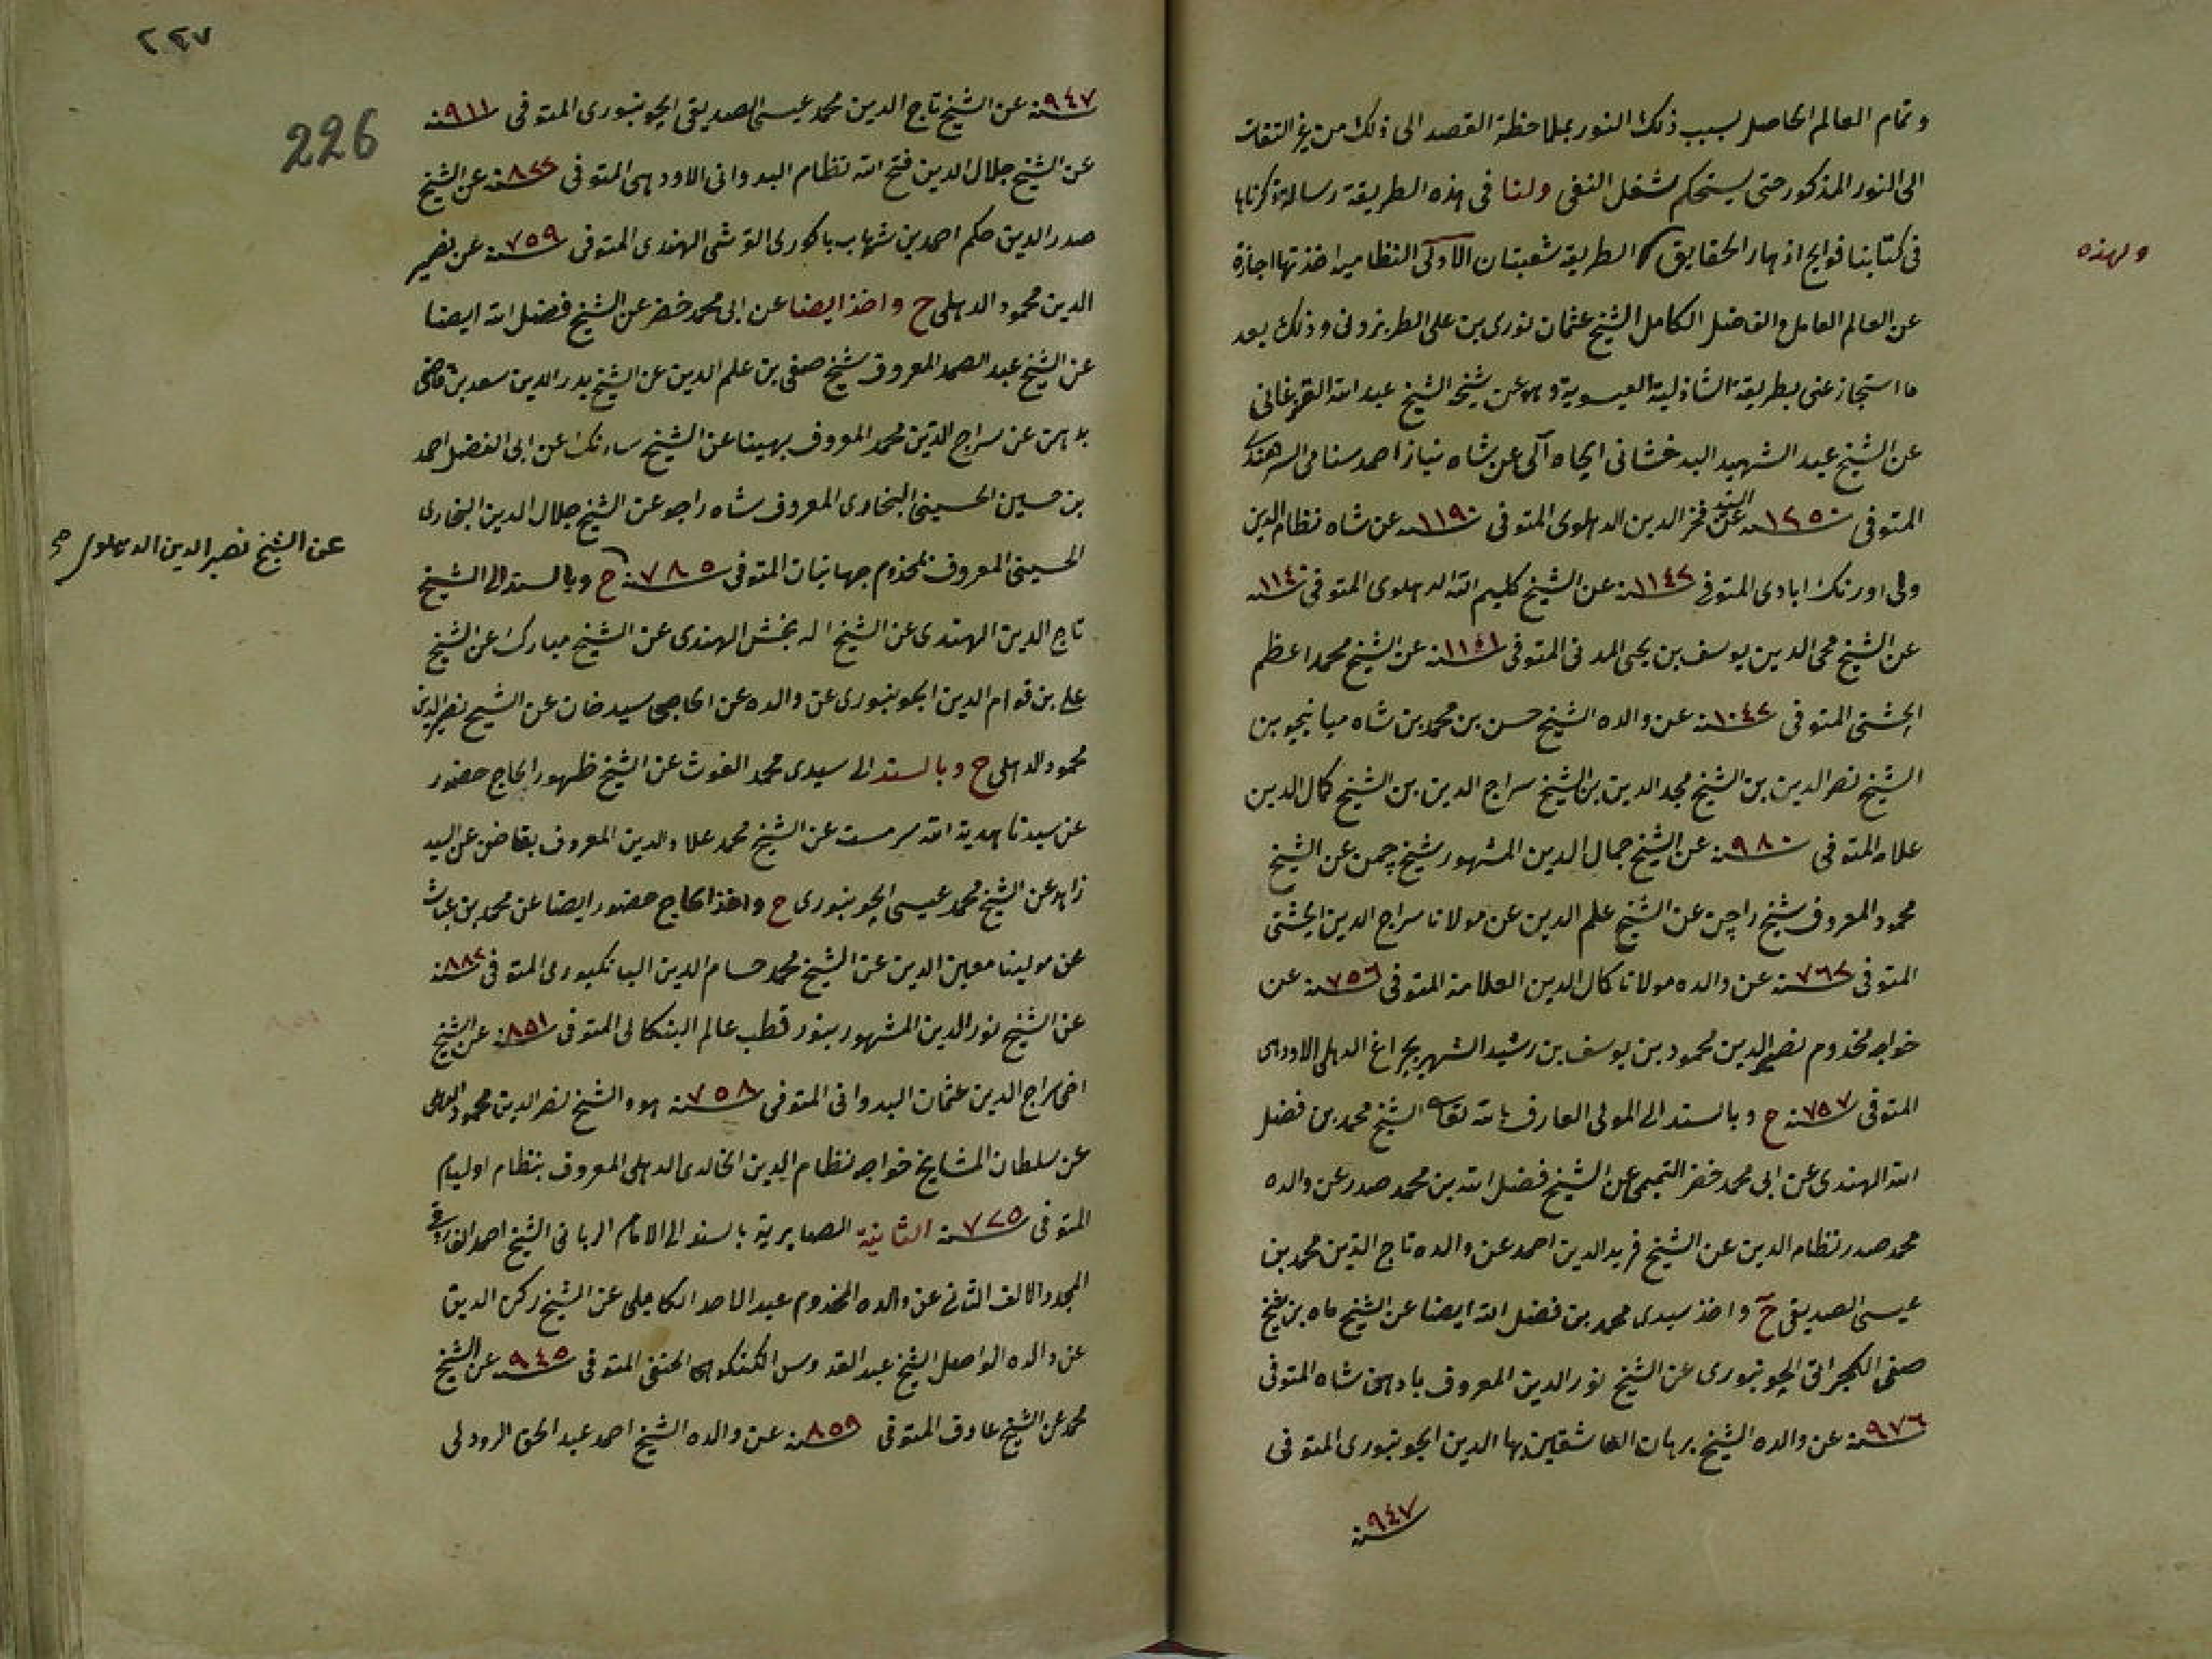 وتمام العالم الحاصل بسبب ذلك النور بملاحظة القصد الى ذلك من غير التفات
الى النور المذكور حتى يستحكم شغل النفى ولنا فى هذه الطريقة رسالة ذكرناها
فى كتابنا فوايح ازهار الحقايق الطريقة شعبتان الاولى النظامية اخذتها اجازة
ولهذه
عن العالم العامل والفاضل الكامل الشيخ عثمان نورى بن على الطربزونى وذلك بعد
ما استجاز عنى بطريقة الشاذلية العيسوية وهو عن شيخه الشيخ عبد الله الفرغانى
عن الشيخ عبد الشهيد البدخشانى عن شاه نياز احمد سنامى السرهندى
المتوفى سنة ١٢٥٠ عن السيد فخر الدين الدهلوى المتوفى سنة ١١٩٠ عن شاه نظام الدين
ولى اورنك ابادى المتوفى سنة ١١٤٢ عن الشيخ كليم الله الدهلوى المتوفى سنة ١١٤٠
عن الشيخ محى الدين يوسف بن يحيى المدنى المتوفى سنة ١١٥١ عن الشيخ محمد اعظم
الچشتى المتوفى سنة ١٠٤٢ عن والده الشيخ حسن بن محمد بن شاه ميانجيو بن
الشيخ نصر الدين بن الشيخ مجد الدين بن الشيخ سراج الدين بن الشيخ كمال الدين
علامه المتوفى سنة ٩٨٠ عن الشيخ جمال الدين المشهور شيخ چمن عن الشيخ
محمود المعروف شيخ راجن عن الشيخ علم الدين عن مولانا سراج الدين الچشتى
المتوفى سنة ٧٦٢ عن والده مولانا كمال الدين العلامة المتوفى سنة ٧٥٦ عن
خواجه مخدوم نصير الدين محمود بن يوسف بن رشيد الشهير بچراغ الدهلى الاودهى
المتوفى سنة ٧٥٧ ح وبالسند الى المولى العارف بالله تعالى الشيخ محمد بن فضل
الله الهندى عن ابى محمد خضر التميمى عن الشيخ فضل الله بن محمد صدر عن والده
محمد صدر نظام الدين عن الشيخ فريد الدين احمد عن والده تاج الدين محمد بن
عيسى الصديقى ح واخذ سيدى محمد بن فضل الله ايضا عن الشيخ ماه بن شيخ
صفى الكجراتى الجونپورى عن الشيخ نور الدين المعروف بادهن شاه المتوفى
سنة ٩٧٦ عن والده الشيخ برهان العاشقين بهاء الدين الجونپورى المتوفى
سنة ٩٤٧
٢٢٧
226
سنة ٩٤٧ عن الشيخ تاج الدين محمد عيسى الصديقى الجونپورى المتوفى سنة ٩١١
عن الشيخ جلال الدين فتح الله نظام البدوانى الاودهى المتوفى سنة ٨٢٢ عن الشيخ
صدر الدين حكم احمد بن شهاب باكورى القرشى الهندى المتوفى سنة ٧٥٩ عن نصير
الدين محمود الدهلى ح واخذ ايضا عن ابى محمد خضر عن الشيخ فضل الله ايضا
عن الشيخ عبد الصمد المعروف شيخ صفى بن علم الدين عن الشيخ بدر الدين سعد بن قاضى
بدهن عن سراج الدين محمد المعروف بهينا عن الشيخ سارنك عن ابى الفضل احمد
بن حسين الحسينى البخارى المعروف شاه راجو عن الشيخ جلال الدين البخارى
عن الشيخ نصير الدين الدهلوى صح
الحسينى المعروف بمخدوم جهانيان المتوفى سنة ٧٨٥ ح وبالسند الى الشيخ
تاج الدين الهندى عن الشيخ اله بخش الهندى عن الشيخ مبارك عن الشيخ
على بن قوام الدين الجونپورى عن والده عن الحاجى سيد خان عن الشيخ نصير الدين
محمود الدهلى ح وبالسند الى سيدى محمد الغوث عن الشيخ ظهور الحاج حضور
عن سيدنا هدية الله سرمست عن الشيخ محمد علاء الدين المعروف بقاضن عن السيد
زاهد عن الشيخ محمد عيسى الجونپورى ح واخذ الحاج حضور ايضا عن محمد بن غياث
عن مولينا معين الدين عن الشيخ محمد حسام الدين المانكپورى المتوفى سنة ٨٨٢
عن الشيخ نور الدين المشهور بنور قطب عالم البنكالى المتوفى سنة ٨٥١ عن الشيخ
اخى سراج الدين عثمان البدوانى المتوفى سنة ٧٥٨ هو والشيخ نصر الدين محمود الدهلى
عن سلطان المشايخ خواجه نظام الدين الخالدى الدهلى المعروف بنظام اولياء
المتوفى سنة ٧٢٥ الثانية الصابرية بالسند الى الامام الربانى الشيخ احمد الفاروقى
المجدد الالف الثانى عن والده المخدوم عبد الاحد الكابلى عن الشيخ ركن الدين
عن والده الواصل الشيخ عبد القدوس الكنكوهى الحنفى المتوفى سنة ٩٤٥ عن الشيخ
محمد عن الشيخ عارف المتوفى سنة ٨٥٩ عن والده الشيخ احمد عبد الحق الرودلى